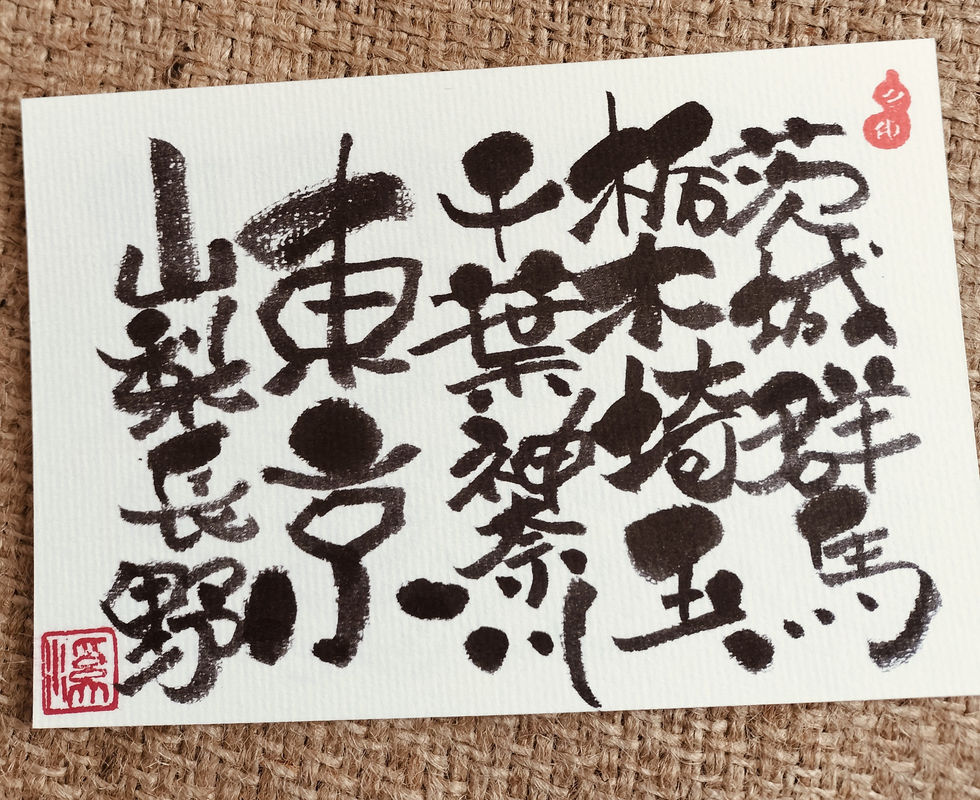 茨城群馬
栃木埼玉
千葉神奈川
東京
山梨長野